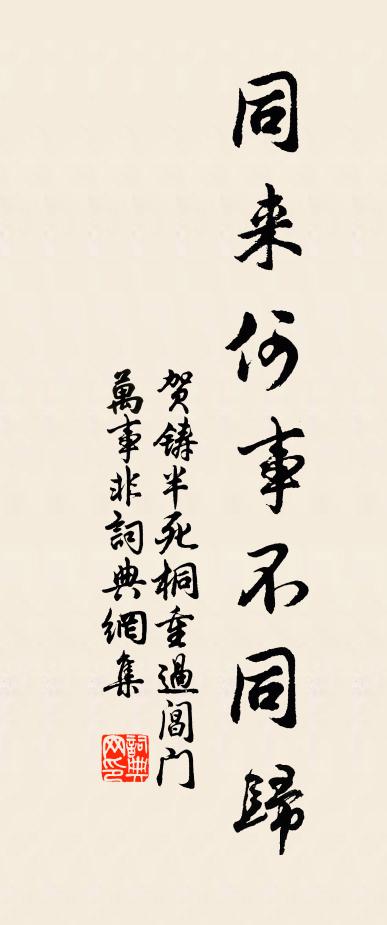 同来何事不同歸
贺鑄半死桐重過閶门
萬事非詞典網集
詞典网印